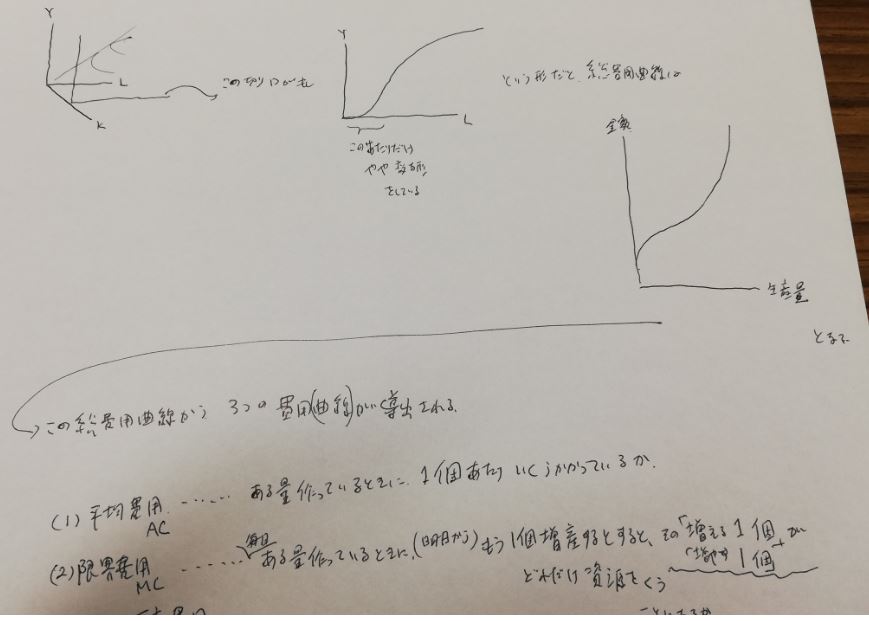 Y
L
K
この切り口がもし
Y
L
この当たりだけ
やや
をしている
という形だと、総費用曲線は
金額
生産量
となる
この総費用曲線から 3つの 費用(曲線)が導出される。
(1) 平均費用 …… ある量作っているときに、1個あたりいくらかかっているか.
AC
(2) 限界費用 …… 毎日 ある量作っているときに、(明日から)もう1個増産するとすると、その「増える1個」が
MC
「増やす1個」
どれだけ資源をくう